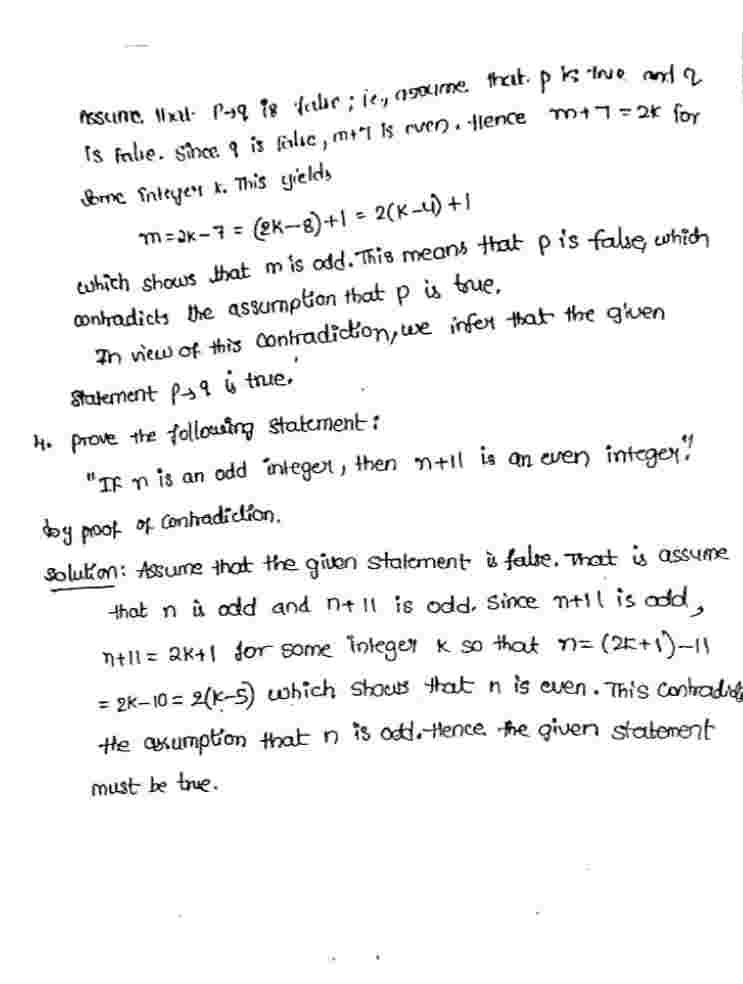 Assume that p→q is false; i.e., assume that p is true and q
is false. Since q is false, m+7 is even. Hence m+7 = 2k for
some integer k. This yields
m = 2k-7 = (2k-8)+1 = 2(k-4)+1
which shows that m is odd. This means that p is false, which
contradicts the assumption that p is true.
In view of this contradiction, we infer that the given
statement p→q is true.
4. prove the following statement:
"If n is an odd integer, then n+11 is an even integer."
by proof of contradiction.
Solution: Assume that the given statement is false. That is assume
that n is odd and n+11 is odd. Since n+11 is odd,
n+11 = 2k+1 for some integer k so that n = (2k+1)-11
= 2k-10 = 2(k-5) which shows that n is even. This contradicts
the assumption that n is odd. Hence the given statement
must be true.